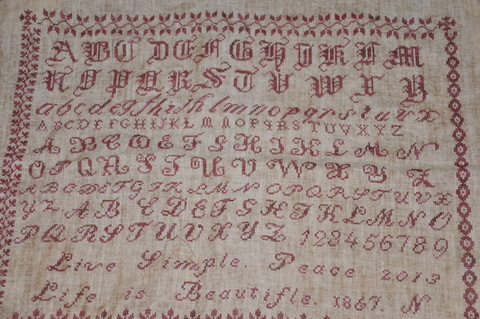 A B C D E F G H I K L M
N O P Q R S T U V W X Y
a b c d e f g h i k l m n o p q r s t u v x
A B C D E F G H I J K L M N O P Q R S T U V X Y Z
A B C D E F G H I K L M N
O P Q R S T U V W X Y Z
A B C D E F G H I K L M N O P Q R S T U V X
Y Z A B C D E F G H I K L M N O
P Q R S T U V X Y Z 1 2 3 4 5 6 7 8 9
Live Simple. Peace 2013
Life is Beautifle. 1867. N